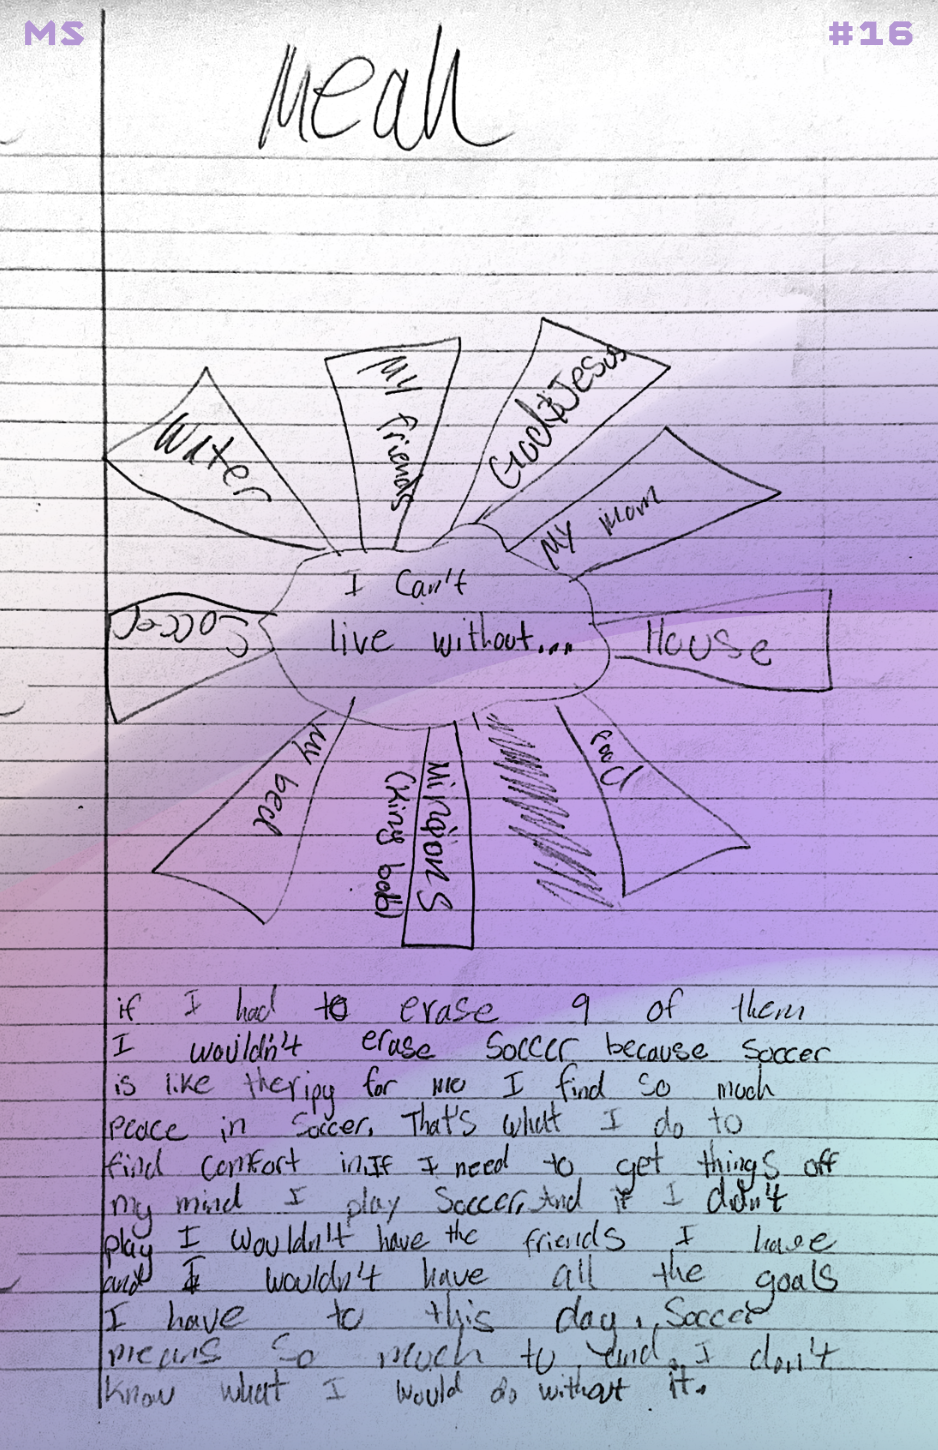 MS
#16
Meah
Water
My friends
God & Jesus
My mom
I Can't
live without...
Soccer
House
My bed
Minions
(King bob)
food
if I had to erase 9 of them
I wouldn't erase Soccer because Soccer
is like theripy for me I find so much
peace in Soccer. That's what I do to
find comfort in. If I need to get things off
my mind I play Soccer, And if I didn't
play I wouldn't have the friends I have
and I wouldn't have all the goals
I have to this day. Soccer
means so much to and, I don't
know what I would do without it.